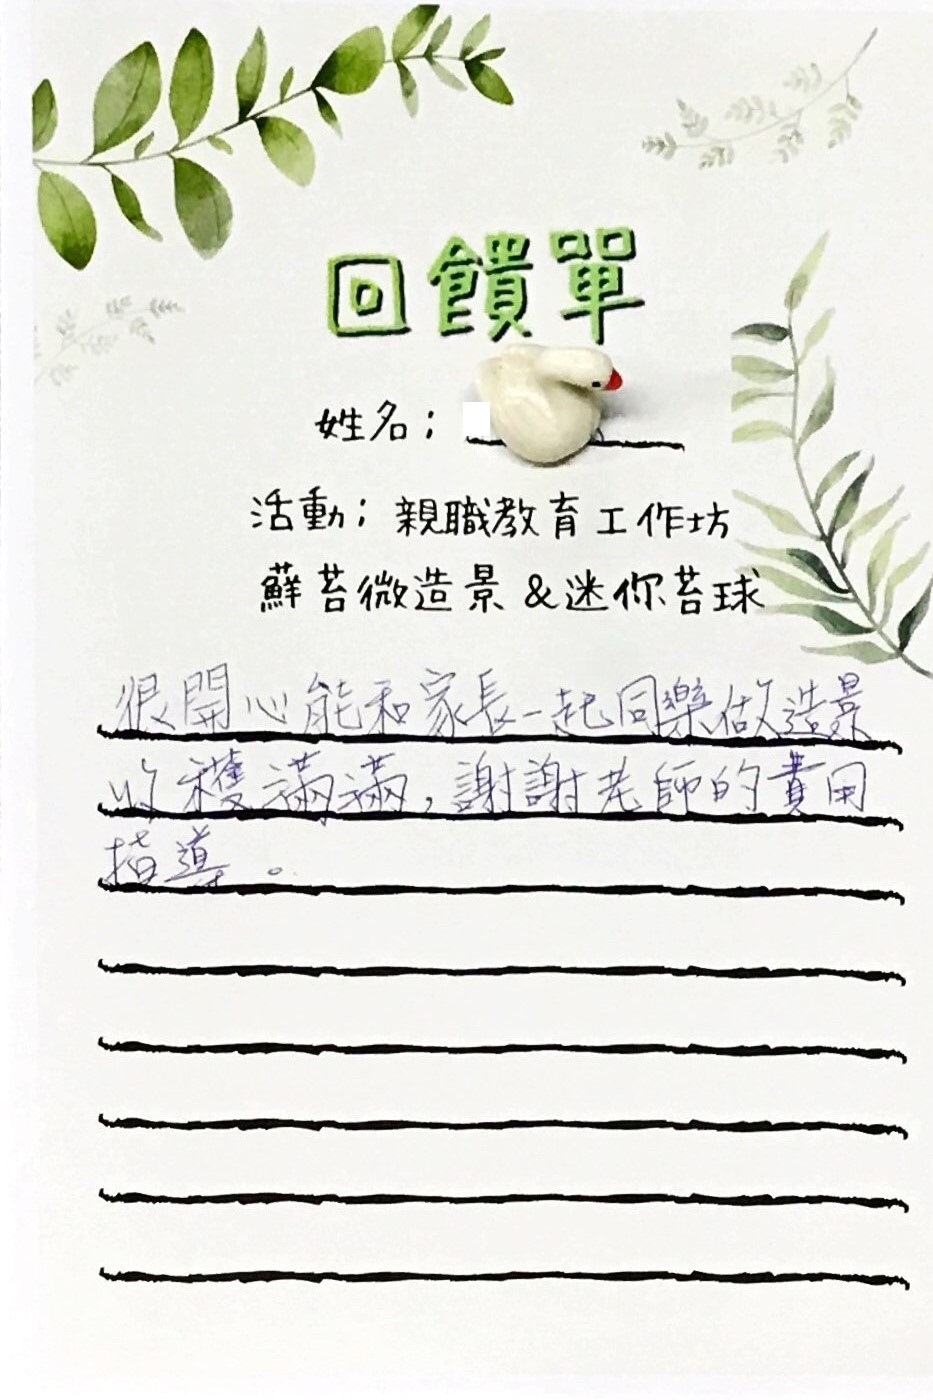 回饋單
姓名;
活動; 親職教育工作坊
蘚苔微造景&迷你苔球
很開心能和家長一起同樂做造景
收穫滿滿,謝謝老師的費用
指導。